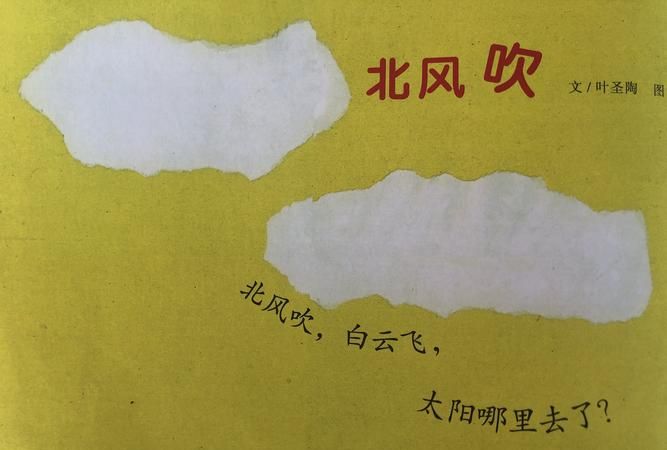 北风吹
文/叶圣陶 图
北风吹，白云飞，
太阳哪里去了？